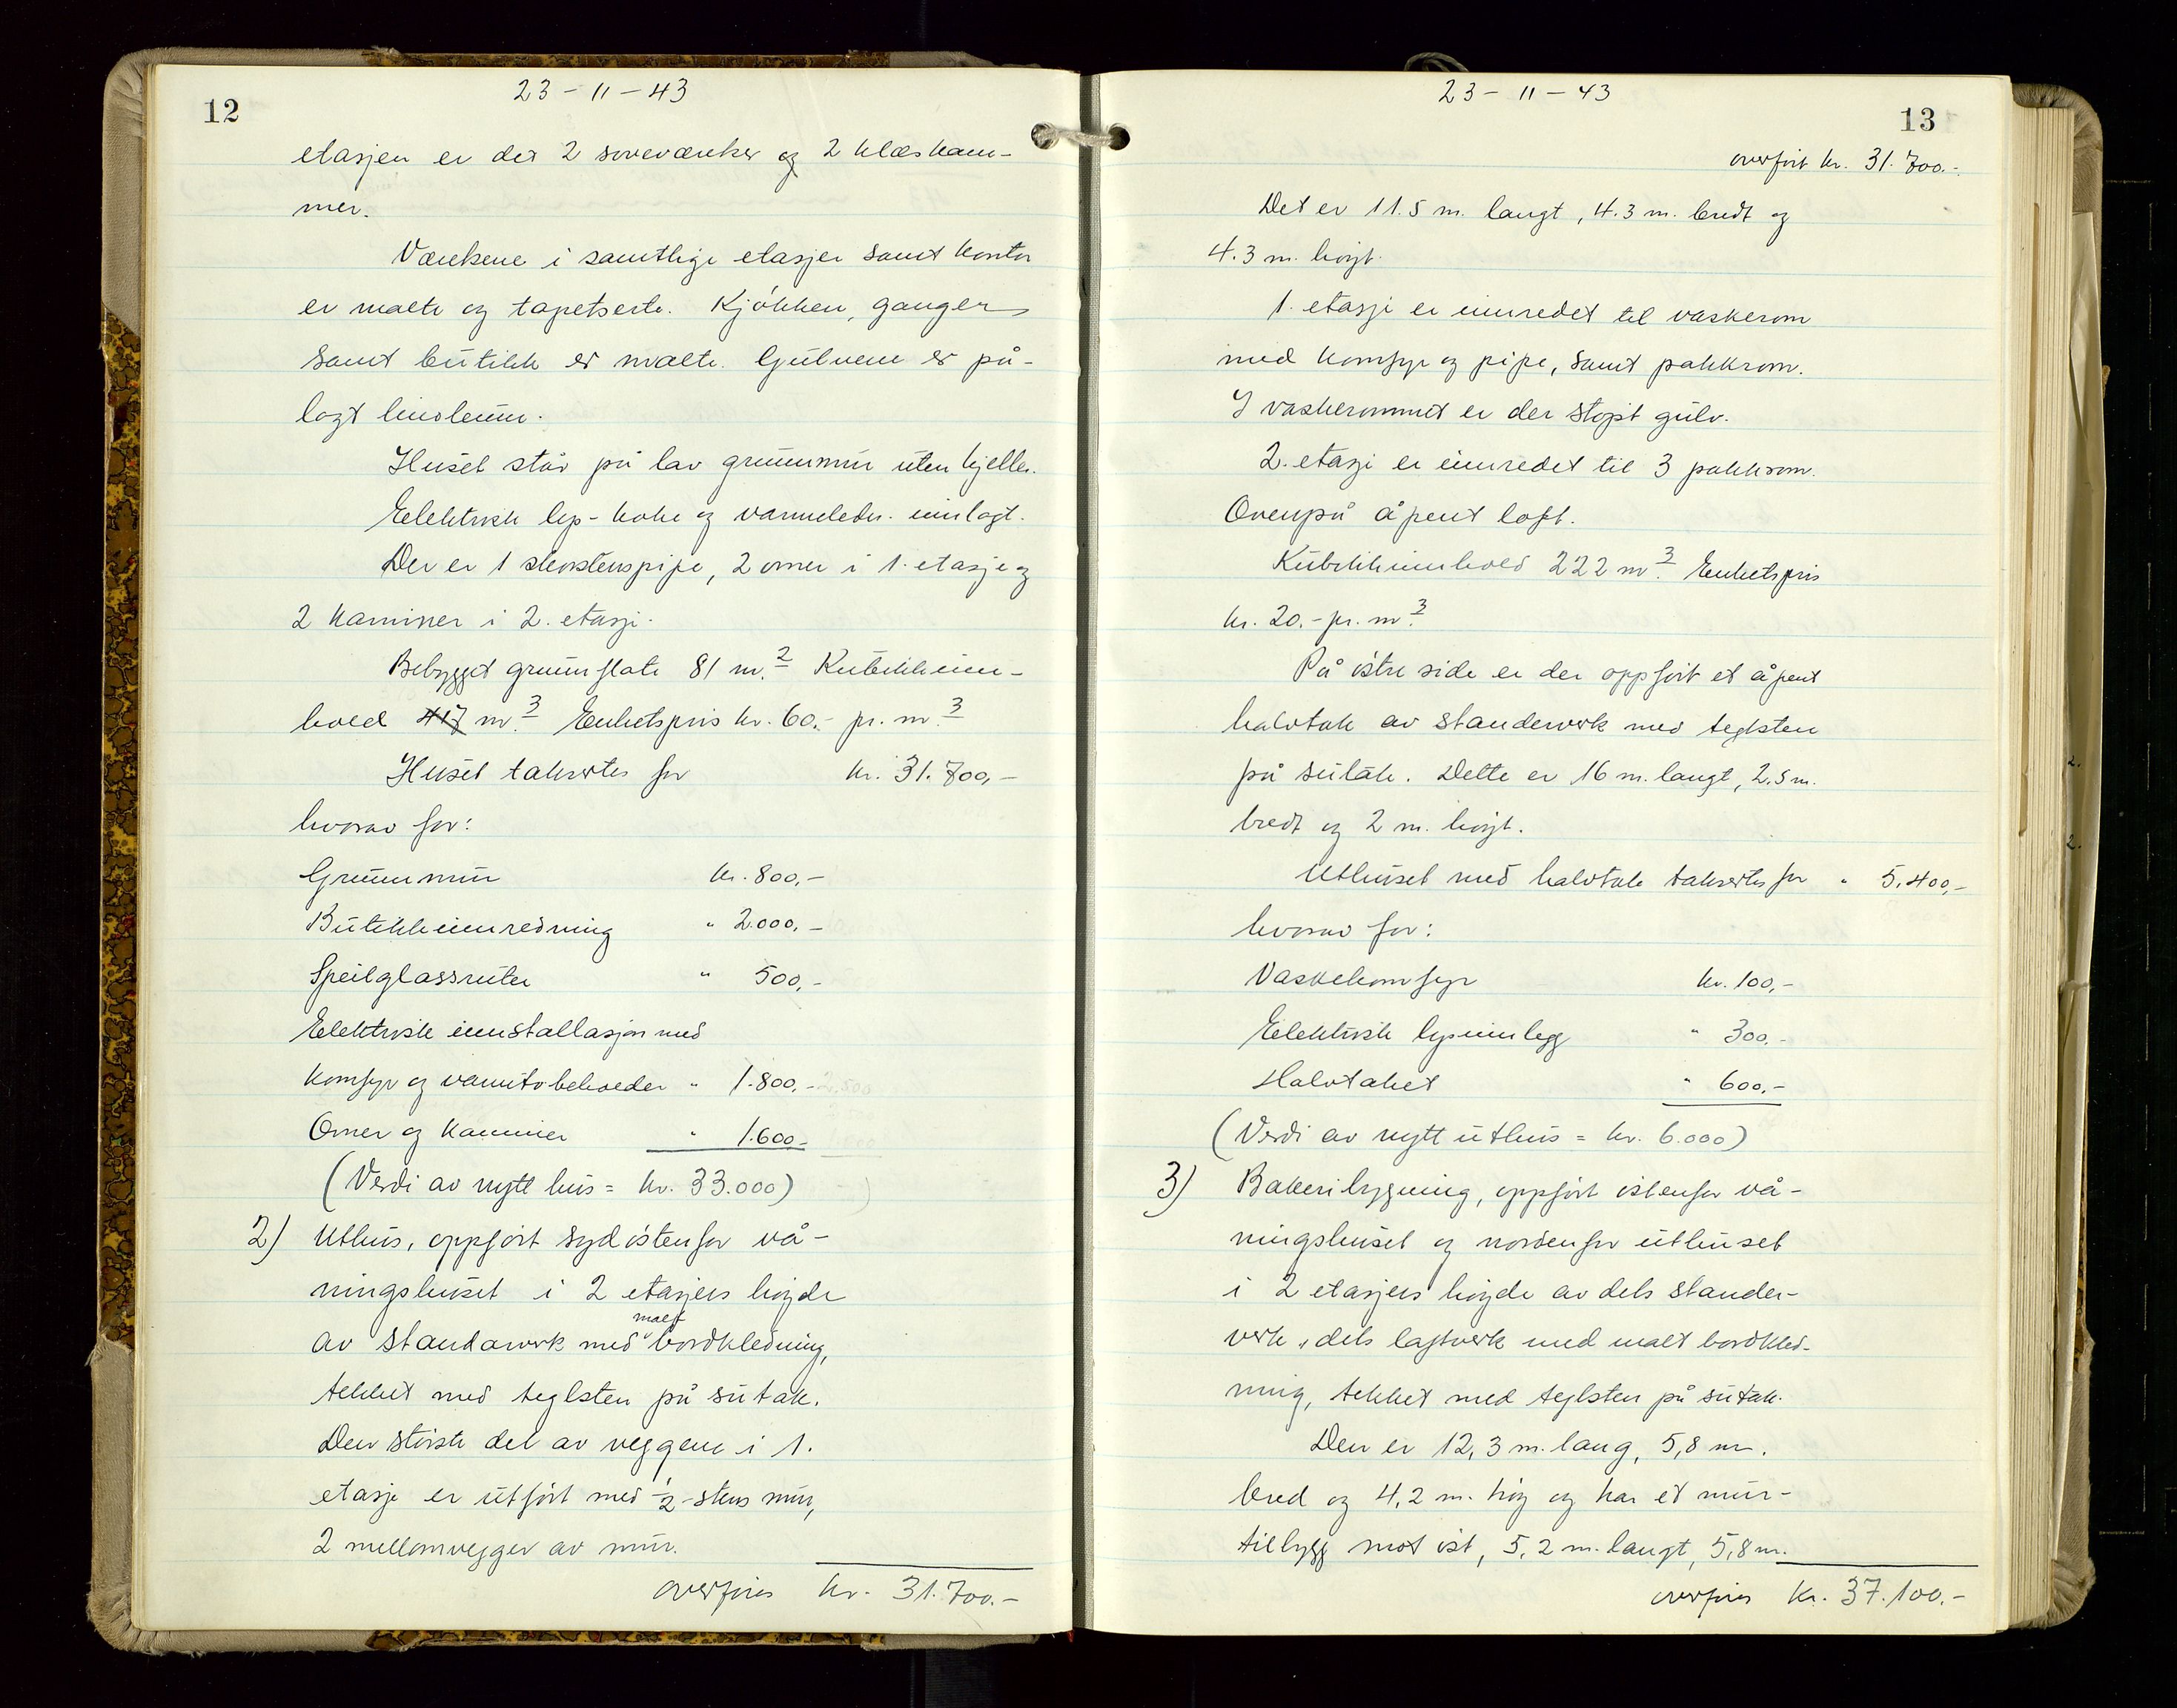 12
23 - 11 - 43
etasjen er det 2 soveværelser og 2 klæskam-
mer.
Værelsene i samtlige etasjer samt kontor
er malte og tapetserte. Kjøkken, ganger
samt butikk er malte. Gulvene er på-
lagt linoleum.
Huset står på lav grunnmur uten kjeller.
Elektrisk lys- koke og varmeledn. innlagt.
Der er 1 skorstenspipe, 2 ovner i 1. etasje og
2 kaminer i 2. etasje.
Bebygget grunnflate 81 m.² Kubikkinn-
hold 417 m.³ Enhetspris kr. 60.- pr. m.³
Huset takseres for kr. 31.700,-
hvorav for:
Grunnmur kr. 800,-
Butikkinnredning " 2.000,-
Speilglassruter " 500,-
Elektrisk innstallasjon med
komfyr og vannto beholder " 1.800,-
Ovner og kaminer " 1.600,-
(Verdi av nytt hus = kr. 33.000)
2) Uthus, oppført sydøstenfor vå-
ningshuset i 2 etasjers høyde
malt
av standarverk med bordkledning,
tekket med teglsten på sutak.
Den største del av veggene i 1.
etasje er utført med ½-stens mur,
2 mellomvegger av mur.
overføres kr. 31.700.-
23 - 11 - 43
13
overført kr. 31.700.-
Det er 11.5 m. langt, 4.3 m. bredt og
4.3 m. høyt.
1. etasje er innredet til vaskerom
med komfyr og pipe, samt pakkrom.
I vaskerommet er der støpt gulv.
2. etasje er innredet til 3 pakkrom.
Ovenpå åpent loft.
Kubikkinnhold 222 m.³ Enhetspris
kr. 20.- pr. m.³
På østre side er der oppført et åpent
halvtak av standerverk med teglsten
på sutak. Dette er 16 m. langt, 2,5 m.
bredt og 2 m. høyt.
Uthuset med halvtak takseres for " 5.400,-
hvorav for:
Vaskekomfyr kr. 100,-
Elektrisk lysinnlegg " 300.-
Halvtaket " 600,-
(Verdi av nytt uthus = kr. 6.000)
3) Bakeribygning, oppført østenfor vå-
ningshuset og nordenfor uthuset
i 2 etasjers høyde av dels stander-
verk " dels laftverk med malt bordkled-
ning, tekket med teglsten på sutak.
Den er 12,3 m. lang, 5,8 m.
bred og 4,2 m. høy og har et mur-
tilbygg mot øst, 5,2 m. langt, 5,8 m.
overføres kr. 37.100.-